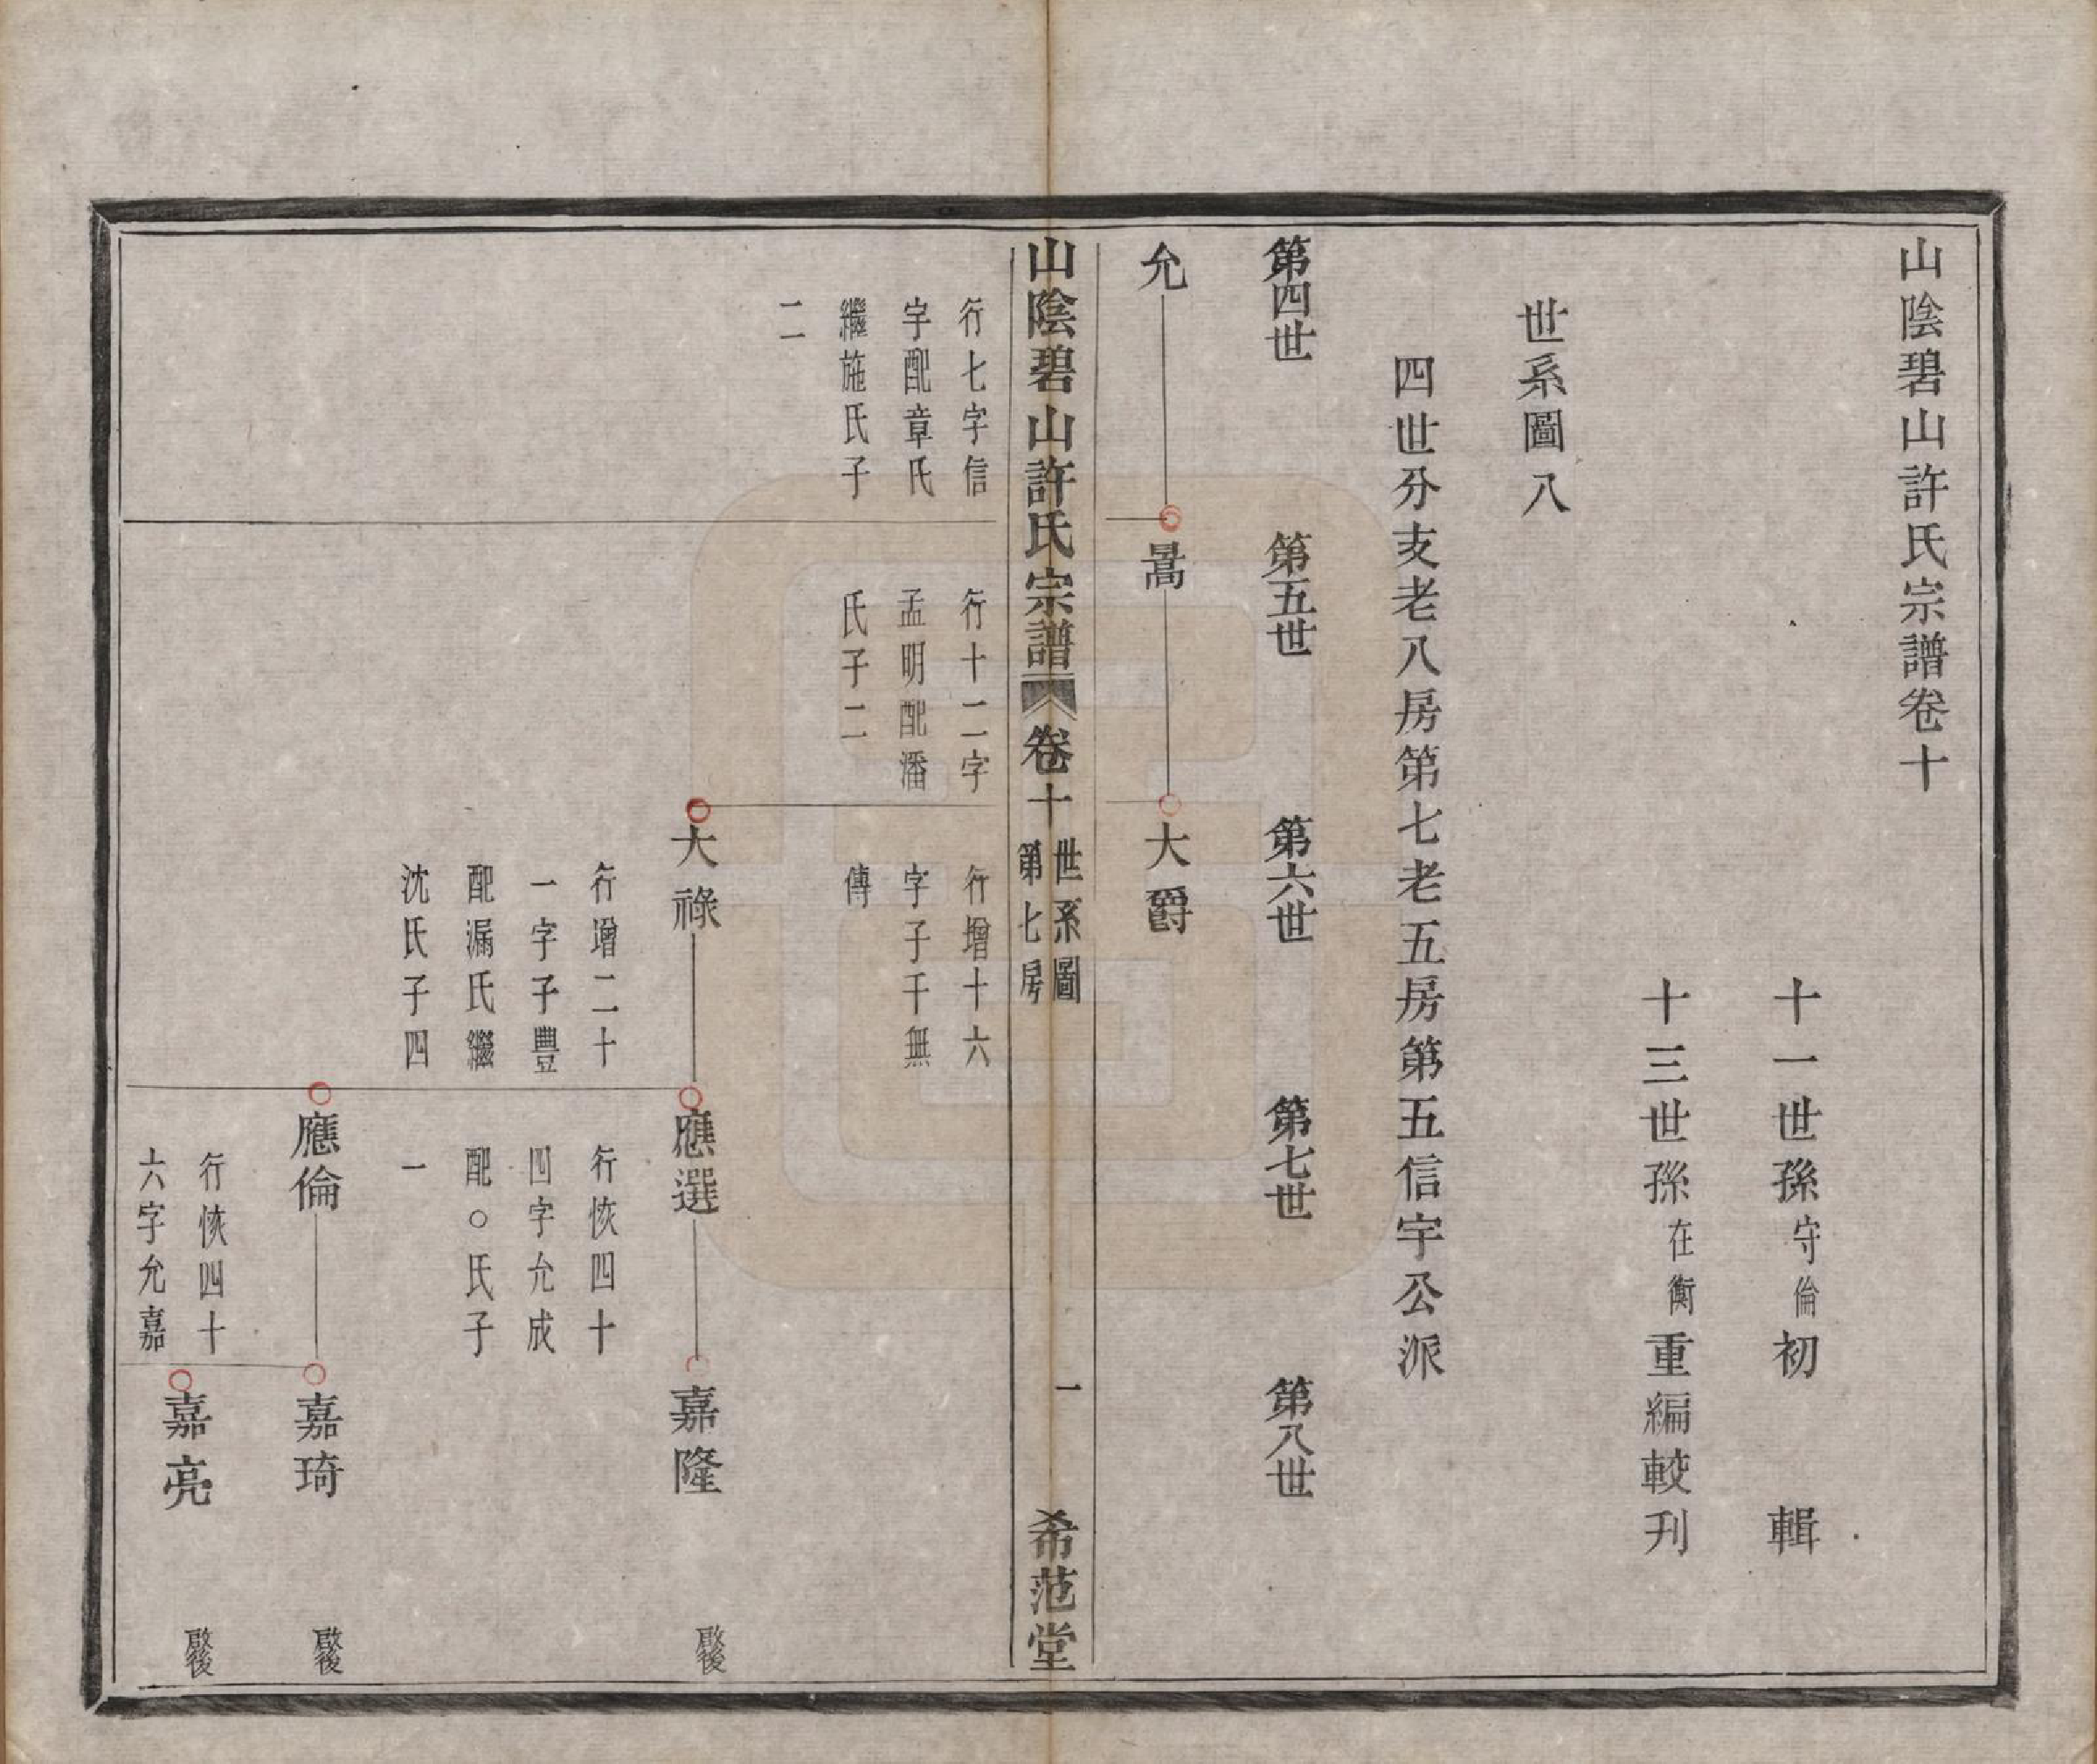 山陰碧山許氏宗譜卷十
十一世孫守倫初輯
十三世孫在衡重編較刋
世系圖八
四世分支老八房第七老五房第五信宇公派
第四世
第五世
第六世
第七世
第八世
允
暠
大爵
山陰碧山許氏宗譜
卷十
世系圖
第七房
一
希范堂
行七字信
字配章氏
繼施氏子
二
行十二字
孟明配潘
氏子二
行增十六
字子千無
傳
大祿
行增二十
一字子豐
配漏氏繼
沈氏子四
應選
行恢四十
四字允成
配○氏子
一
嘉隆
啟後
應倫
行恢四十
六字允嘉
嘉琦
啟後
嘉亮
啟後